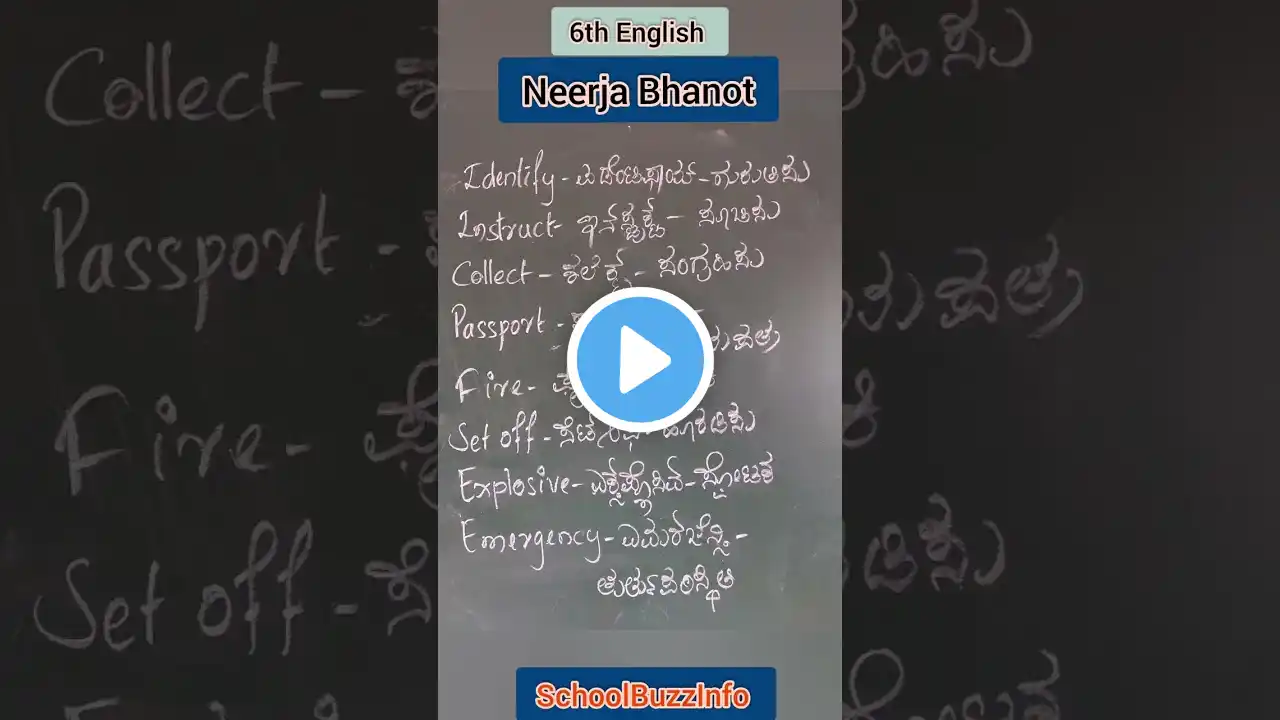 6th English
Neerja Bhanot
Identify - ಐಡೆಂಟಿಫಾಯ್ - ಗುರುತಿಸು
Instruct - ಇನ್ಸ್ಟ್ರಕ್ಟ್ - ಸೂಚಿಸು
Collect - ಕಲೆಕ್ಟ್ - ಸಂಗ್ರಹಿಸು
Passport -
Fire -
Set off - ಹೊರಡಿಸು
Explosive - ಎಕ್ಸ್‌ಪ್ಲೊಸಿವ್ - ಸ್ಫೋಟಕ
Emergency - ಎಮರಜೆನ್ಸಿ -
ತುರ್ತುಪರಿಸ್ಥಿತಿ
SchoolBuzzInfo